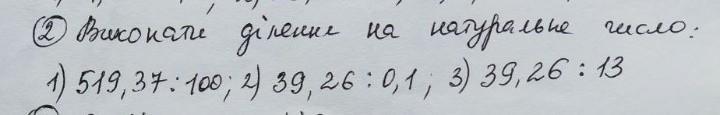 ② Виконати ділення на натуральне число:
1) 519,37:100; 2) 39,26:0,1; 3) 39,26:13